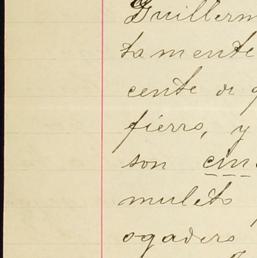 Guillerm
tamente
cente de q
fierro, y
son cin
mulito
ogadero